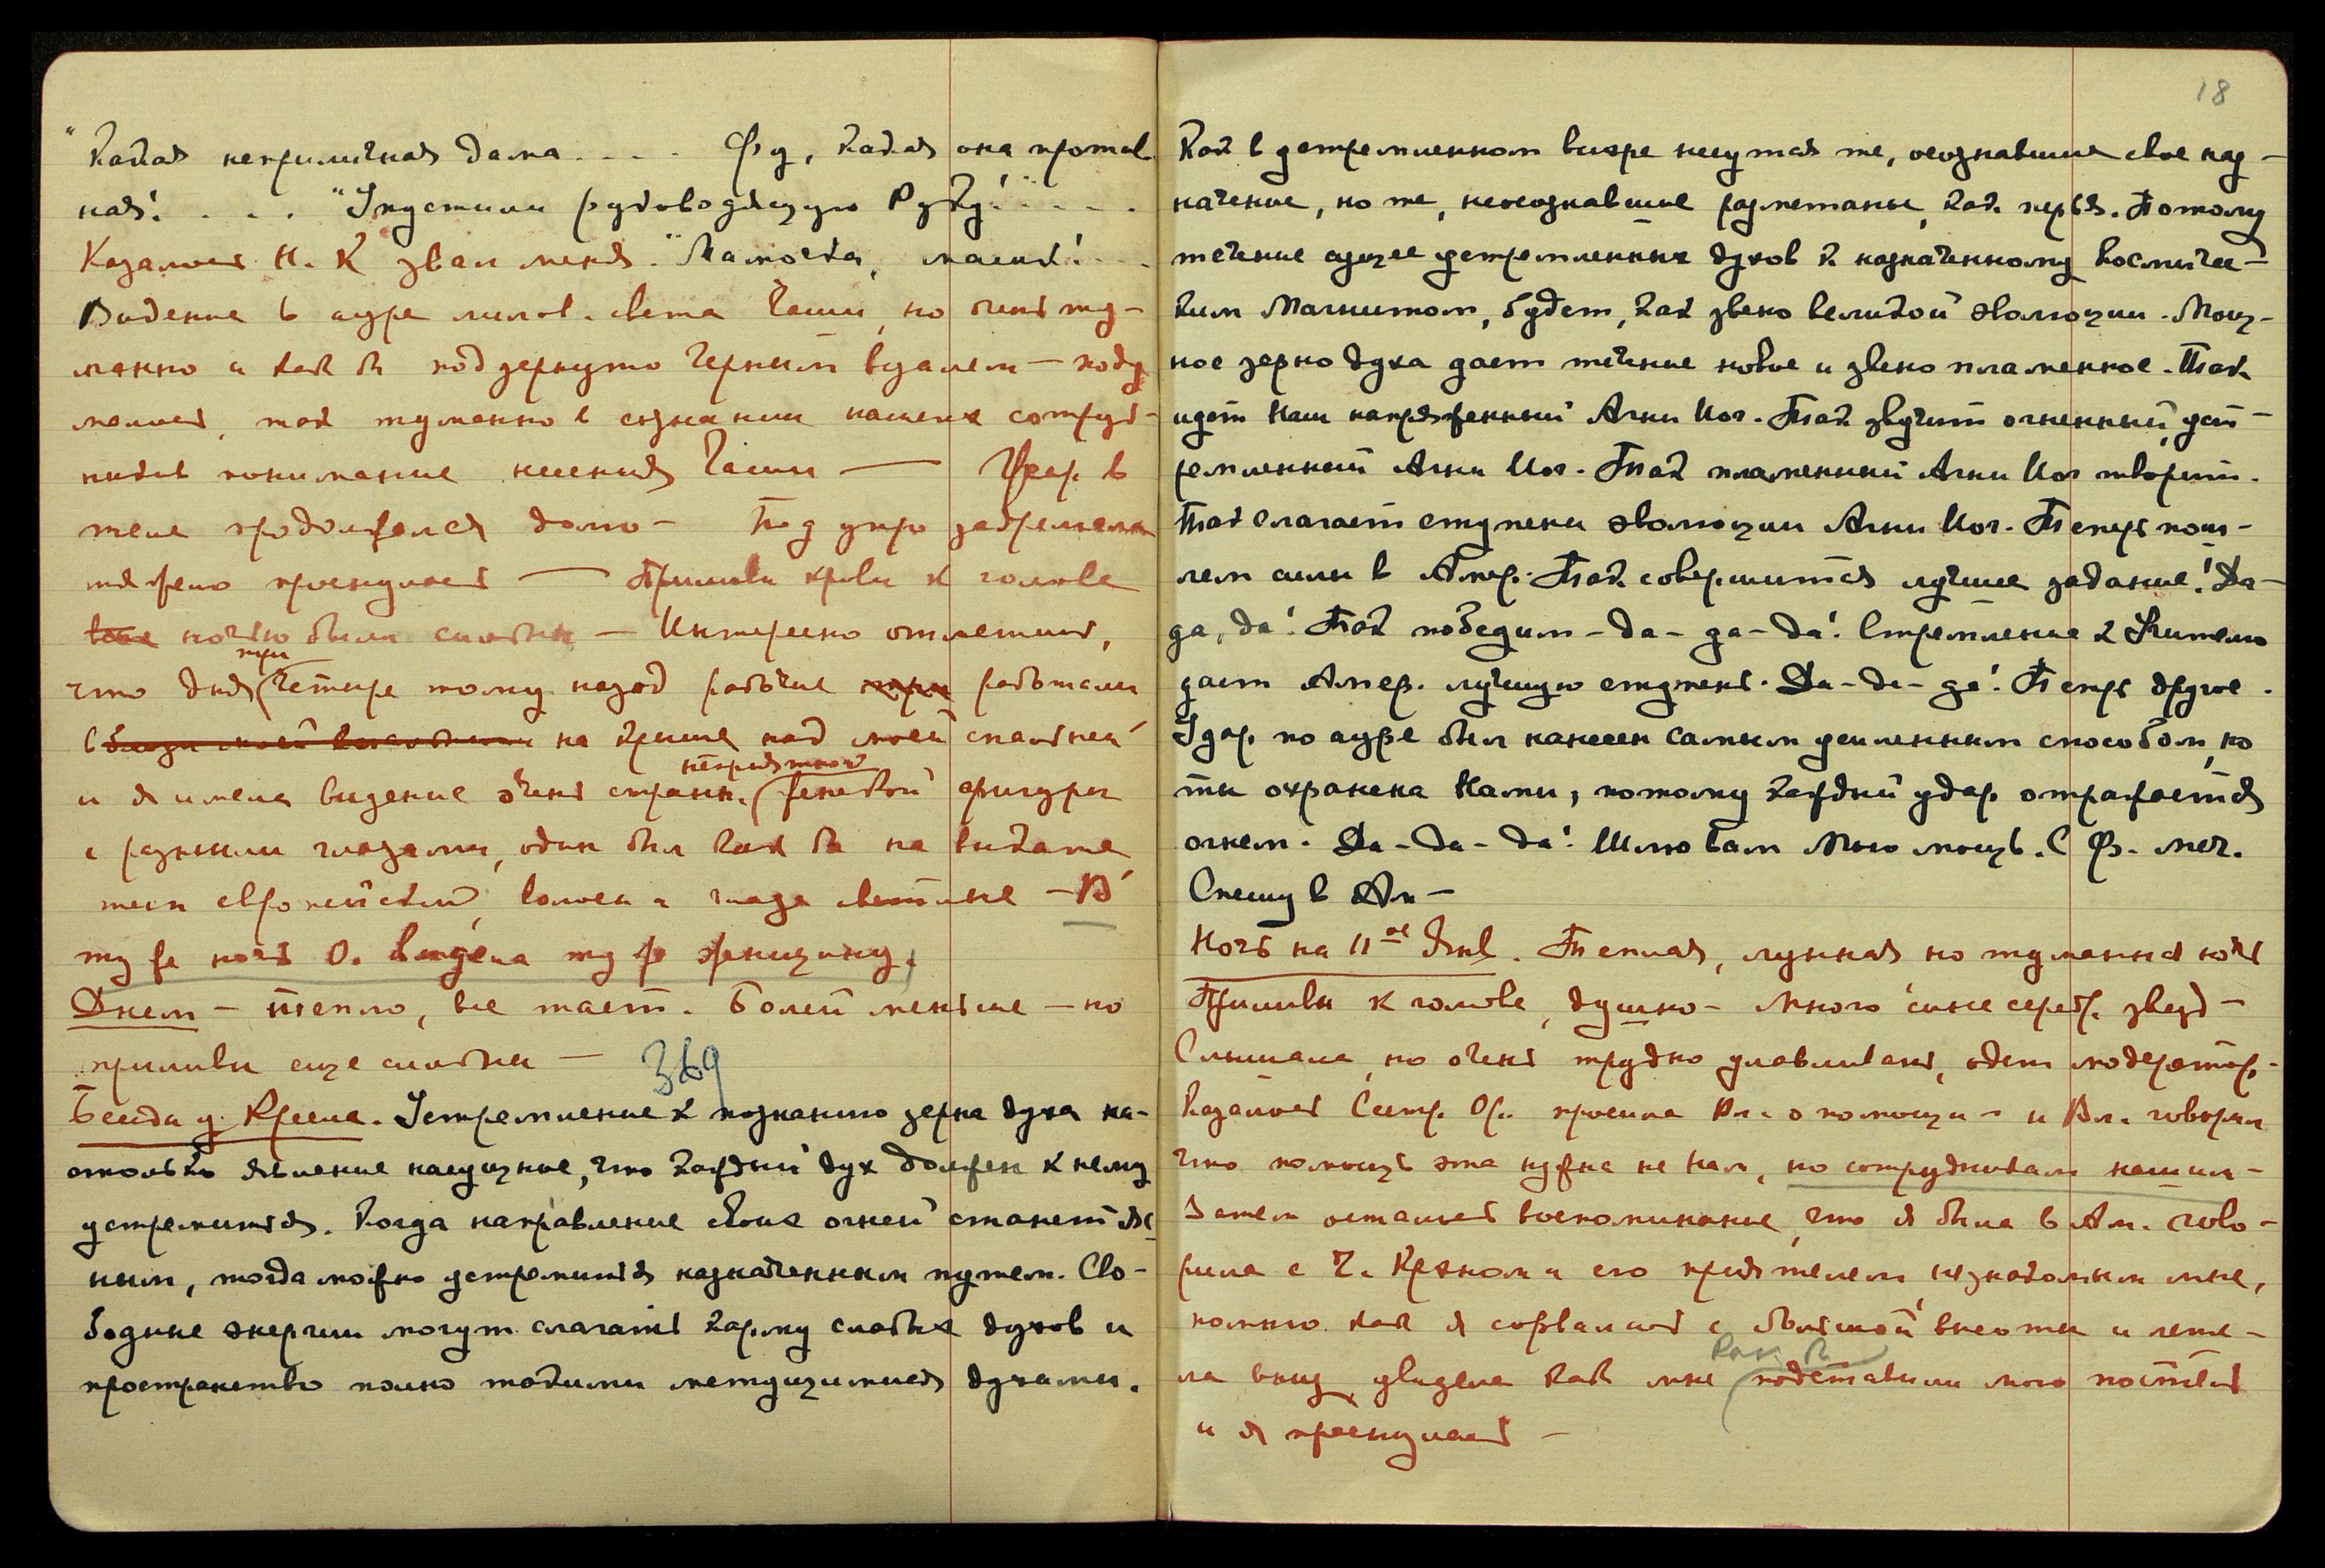 "Какая неприличная дама . . . . Фу, какая она против
ная! . . . "Упустили руководящую Руку! . . . .
Казалось Н. К звал меня. "Мамочка, маешь! . . .
Видение в ауре лилов. света Чаши, но очень ту-
манно и как бы подзернуто черным вуалем — поду
малось, так туманно в сознании наших сотруд-
ников понимание несения Чаши — Жар в
теле продолжался долго — Под утро задремала
тяжело проснулась — Приливы крови к голове
ночью были слабы — Интересно отметить,
что дня (четыре три тому назад рабочие работали
вблизи моей на крыше над моей спальней
и я имела видение очень странн. (женской неприятной фигуры
с разными глазами, один был как бы на видоте
тем европейский, волосы и глаза светлые — В
ту же ночь О. видела ту же женщину.
Днем — тепло, все тает. Болей меньше — но
приливы еще слабы — 369
Беседа у Кресла. Устремление к познанию зерна духа на-
столько явление насущное, что каждый дух должен к нему
устремиться. Когда направление своих огней станет яс
ным, тогда можно устремиться назначенным путем. Сво-
бодные энергии могут слагать карму слабых духов и
пространство полно такими метущимися духами.
18
Как в устремленном вихре несутся те, осознавшие свое наз-
начение, но те, неосознавшие разметаны, как перья. Потому
течение сущее устремленных духов к назначенному Космичес-
ким Магнитом, будет, как звено великой эволюции. Мощ-
ное зерно духа дает течение новое и звено пламенное. Так
идет Наш напряженный Агни Иог. Так звучит огненный, уст-
ремленный Агни Иог. Так пламенный Агни Иог творит.
Так слагает ступени эволюции Агни Иог. Теперь пош-
лем силы в Амер. Так совершится лучшее задание! Да-
да, да! Так победим - да - да - да! Стремление к Учителю
дает Амер. лучшую ступень. Да - да - да! Теперь другое.
Удар по ауре был нанесен самым усиленным способом, но
ты охранена Нами, потому каждый удар отражается
огнем. Да - да - да! Шлю вам Мою мощь. С Фр. меч.
Спешу в Ам —
Ночь на 11ое Янв. Теплая, лунная но туманная ночь
Приливы к голове, душно — много сине серебр. звезд —
Слышала, но очень трудно улавливать, один модератор. —
Казалось Сестр. Ор. просила Вл. о помощи — и Вл. говорил
что помощь эта нужна не Нам, но сотрудникам нашим —
Затем осталось воспоминание, что я была в Ам. гово-
рила с Ч. Крэном и его приятелем, незнакомым мне,
помню как я сорвалась с большой высоты и лете-
ла вниз, увидела как мне (как бы подставили мою постель
и я проснулась —